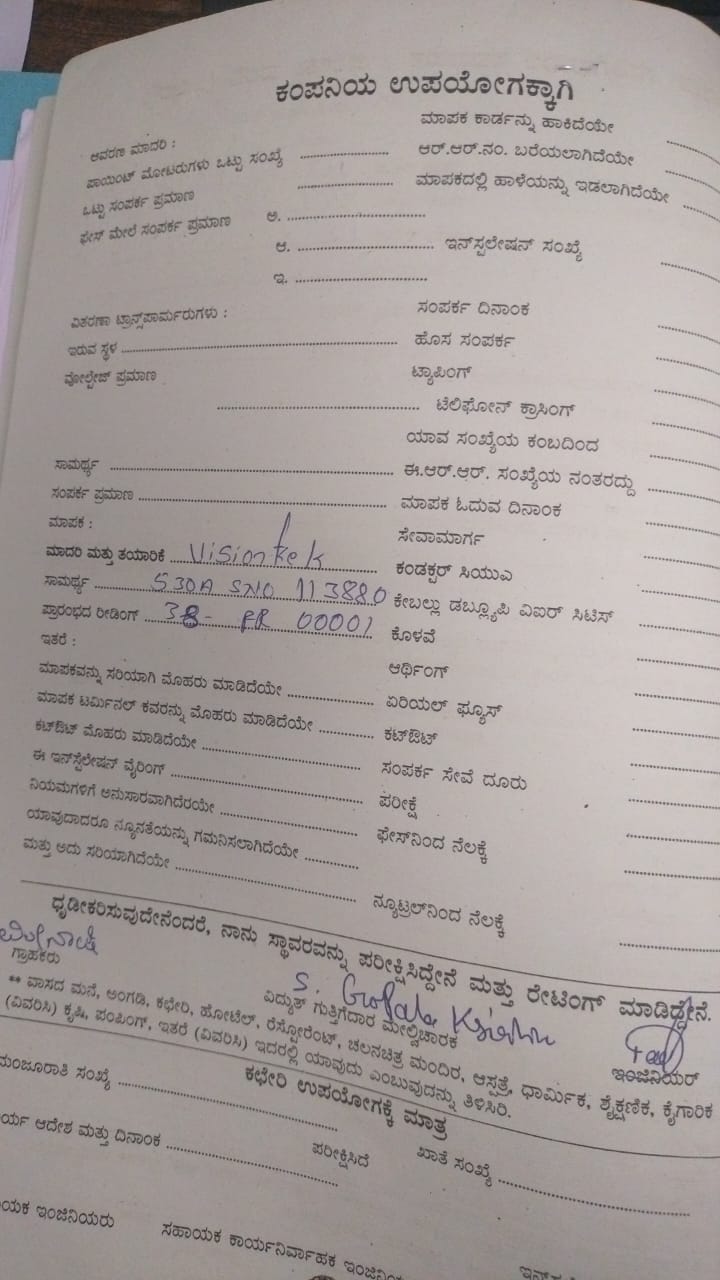 ಕಂಪನಿಯ ಉಪಯೋಗಕ್ಕಾಗಿ
ಮಾಪಕ ಕಾರ್ಡನ್ನು ಹಾಕಿದೆಯೇ
ಆವರಣ ಮಾದರಿ :
ಪಾಯಿಂಟ್ ಮೋಟರುಗಳು ಒಟ್ಟು ಸಂಖ್ಯೆ ............ ಆರ್.ಆರ್.ನಂ. ಬರೆಯಲಾಗಿದೆಯೇ
ಒಟ್ಟು ಸಂಪರ್ಕ ಪ್ರಮಾಣ ............ ಮಾಪಕದಲ್ಲಿ ಹಾಳೆಯನ್ನು ಇಡಲಾಗಿದೆಯೇ
ಫೇಸ್ ಮೇಲೆ ಸಂಪರ್ಕ ಪ್ರಮಾಣ ಅ. ............
ಆ. ............ ಇನ್‌ಸ್ಪಲೇಷನ್ ಸಂಖ್ಯೆ
ಇ. ............
ವಿತರಣಾ ಟ್ರಾನ್ಸ್‌ಪಾರ್ಮರುಗಳು : ಸಂಪರ್ಕ ದಿನಾಂಕ
ಇರುವ ಸ್ಥಳ ............ ಹೊಸ ಸಂಪರ್ಕ
ವೋಲ್ಟೇಜ್ ಪ್ರಮಾಣ ಟ್ಯಾಪಿಂಗ್
............ ಟೆಲಿಫೋನ್ ಕ್ರಾಸಿಂಗ್
ಯಾವ ಸಂಖ್ಯೆಯ ಕಂಬದಿಂದ
ಸಾಮರ್ಥ್ಯ ............ ಈ.ಆರ್.ಆರ್. ಸಂಖ್ಯೆಯ ನಂತರದ್ದು
ಸಂಪರ್ಕ ಪ್ರಮಾಣ ............ ಮಾಪಕ ಓದುವ ದಿನಾಂಕ
ಮಾಪಕ : ಸೇವಾಮಾರ್ಗ
ಮಾದರಿ ಮತ್ತು ತಯಾರಿಕೆ Visiontek ಕಂಡಕ್ಟರ್ ಸಿಯುಎ
ಸಾಮರ್ಥ್ಯ 530A SNO 113880 ಕೇಬಲ್ಲು ಡಬ್ಲ್ಯೂಪಿ ವಿಐರ್ ಸಿಟಿಸ್
ಪ್ರಾರಂಭದ ರೀಡಿಂಗ್ 38- FR 00001 ಕೊಳವೆ
ಇತರೆ : ಆರ್ಥಿಂಗ್
ಮಾಪಕವನ್ನು ಸರಿಯಾಗಿ ಮೊಹರು ಮಾಡಿದೆಯೇ ............ ಏರಿಯಲ್ ಫ್ಯೂಸ್
ಮಾಪಕ ಟರ್ಮಿನಲ್ ಕವರನ್ನು ಮೊಹರು ಮಾಡಿದೆಯೇ ............ ಕಟ್‌ಔಟ್
ಕಟ್‌ಔಟ್ ಮೊಹರು ಮಾಡಿದೆಯೇ ............ ಸಂಪರ್ಕ ಸೇವೆ ದೂರು
ಈ ಇನ್‌ಸ್ಪೆಲೇಷನ್ ವೈರಿಂಗ್ ............ ಪರೀಕ್ಷೆ
ನಿಯಮಗಳಿಗೆ ಅನುಸಾರವಾಗಿದೆರಯೇ ............ ಫೇಸ್‌ನಿಂದ ನೆಲಕ್ಕೆ
ಯಾವುದಾದರೂ ನ್ಯೂನತೆಯನ್ನು ಗಮನಿಸಲಾಗಿದೆಯೇ ............
ಮತ್ತು ಅದು ಸರಿಯಾಗಿದೆಯೇ ............ ನ್ಯೂಟ್ರಲ್‌ನಿಂದ ನೆಲಕ್ಕೆ
ಧೃಡೀಕರಿಸುವುದೇನೆಂದರೆ, ನಾನು ಸ್ಥಾವರವನ್ನು ಪರೀಕ್ಷಿಸಿದ್ದೇನೆ ಮತ್ತು ರೇಟಿಂಗ್ ಮಾಡಿದ್ದೇನೆ.
ಮೀನಾಕ್ಷಿ S. Gopala Krishna
ಗ್ರಾಹಕರು ವಿದ್ಯುತ್ ಗುತ್ತಿಗೆದಾರ ಮೇಲ್ವಿಚಾರಕ ಇಂಜಿನಿಯರ್
** ವಾಸದ ಮನೆ, ಅಂಗಡಿ, ಕಛೇರಿ, ಹೋಟೆಲ್, ರೆಸ್ಟೋರೆಂಟ್, ಚಲನಚಿತ್ರ ಮಂದಿರ, ಆಸ್ಪತ್ರೆ, ಧಾರ್ಮಿಕ, ಶೈಕ್ಷಣಿಕ, ಕೈಗಾರಿಕ
(ವಿವರಿಸಿ) ಕೃಷಿ, ಪಂಪಿಂಗ್, ಇತರೆ (ವಿವರಿಸಿ) ಇದರಲ್ಲಿ ಯಾವುದು ಎಂಬುವುದನ್ನು ತಿಳಿಸಿರಿ.
ಕಛೇರಿ ಉಪಯೋಗಕ್ಕೆ ಮಾತ್ರ
ಮಂಜೂರಾತಿ ಸಂಖ್ಯೆ ............ ಖಾತೆ ಸಂಖ್ಯೆ ............
ಆದೇಶ ಮತ್ತು ದಿನಾಂಕ ............ ಪರೀಕ್ಷಿಸಿದೆ
ಇಂಜಿನಿಯರು ಸಹಾಯಕ ಕಾರ್ಯನಿರ್ವಾಹಕ